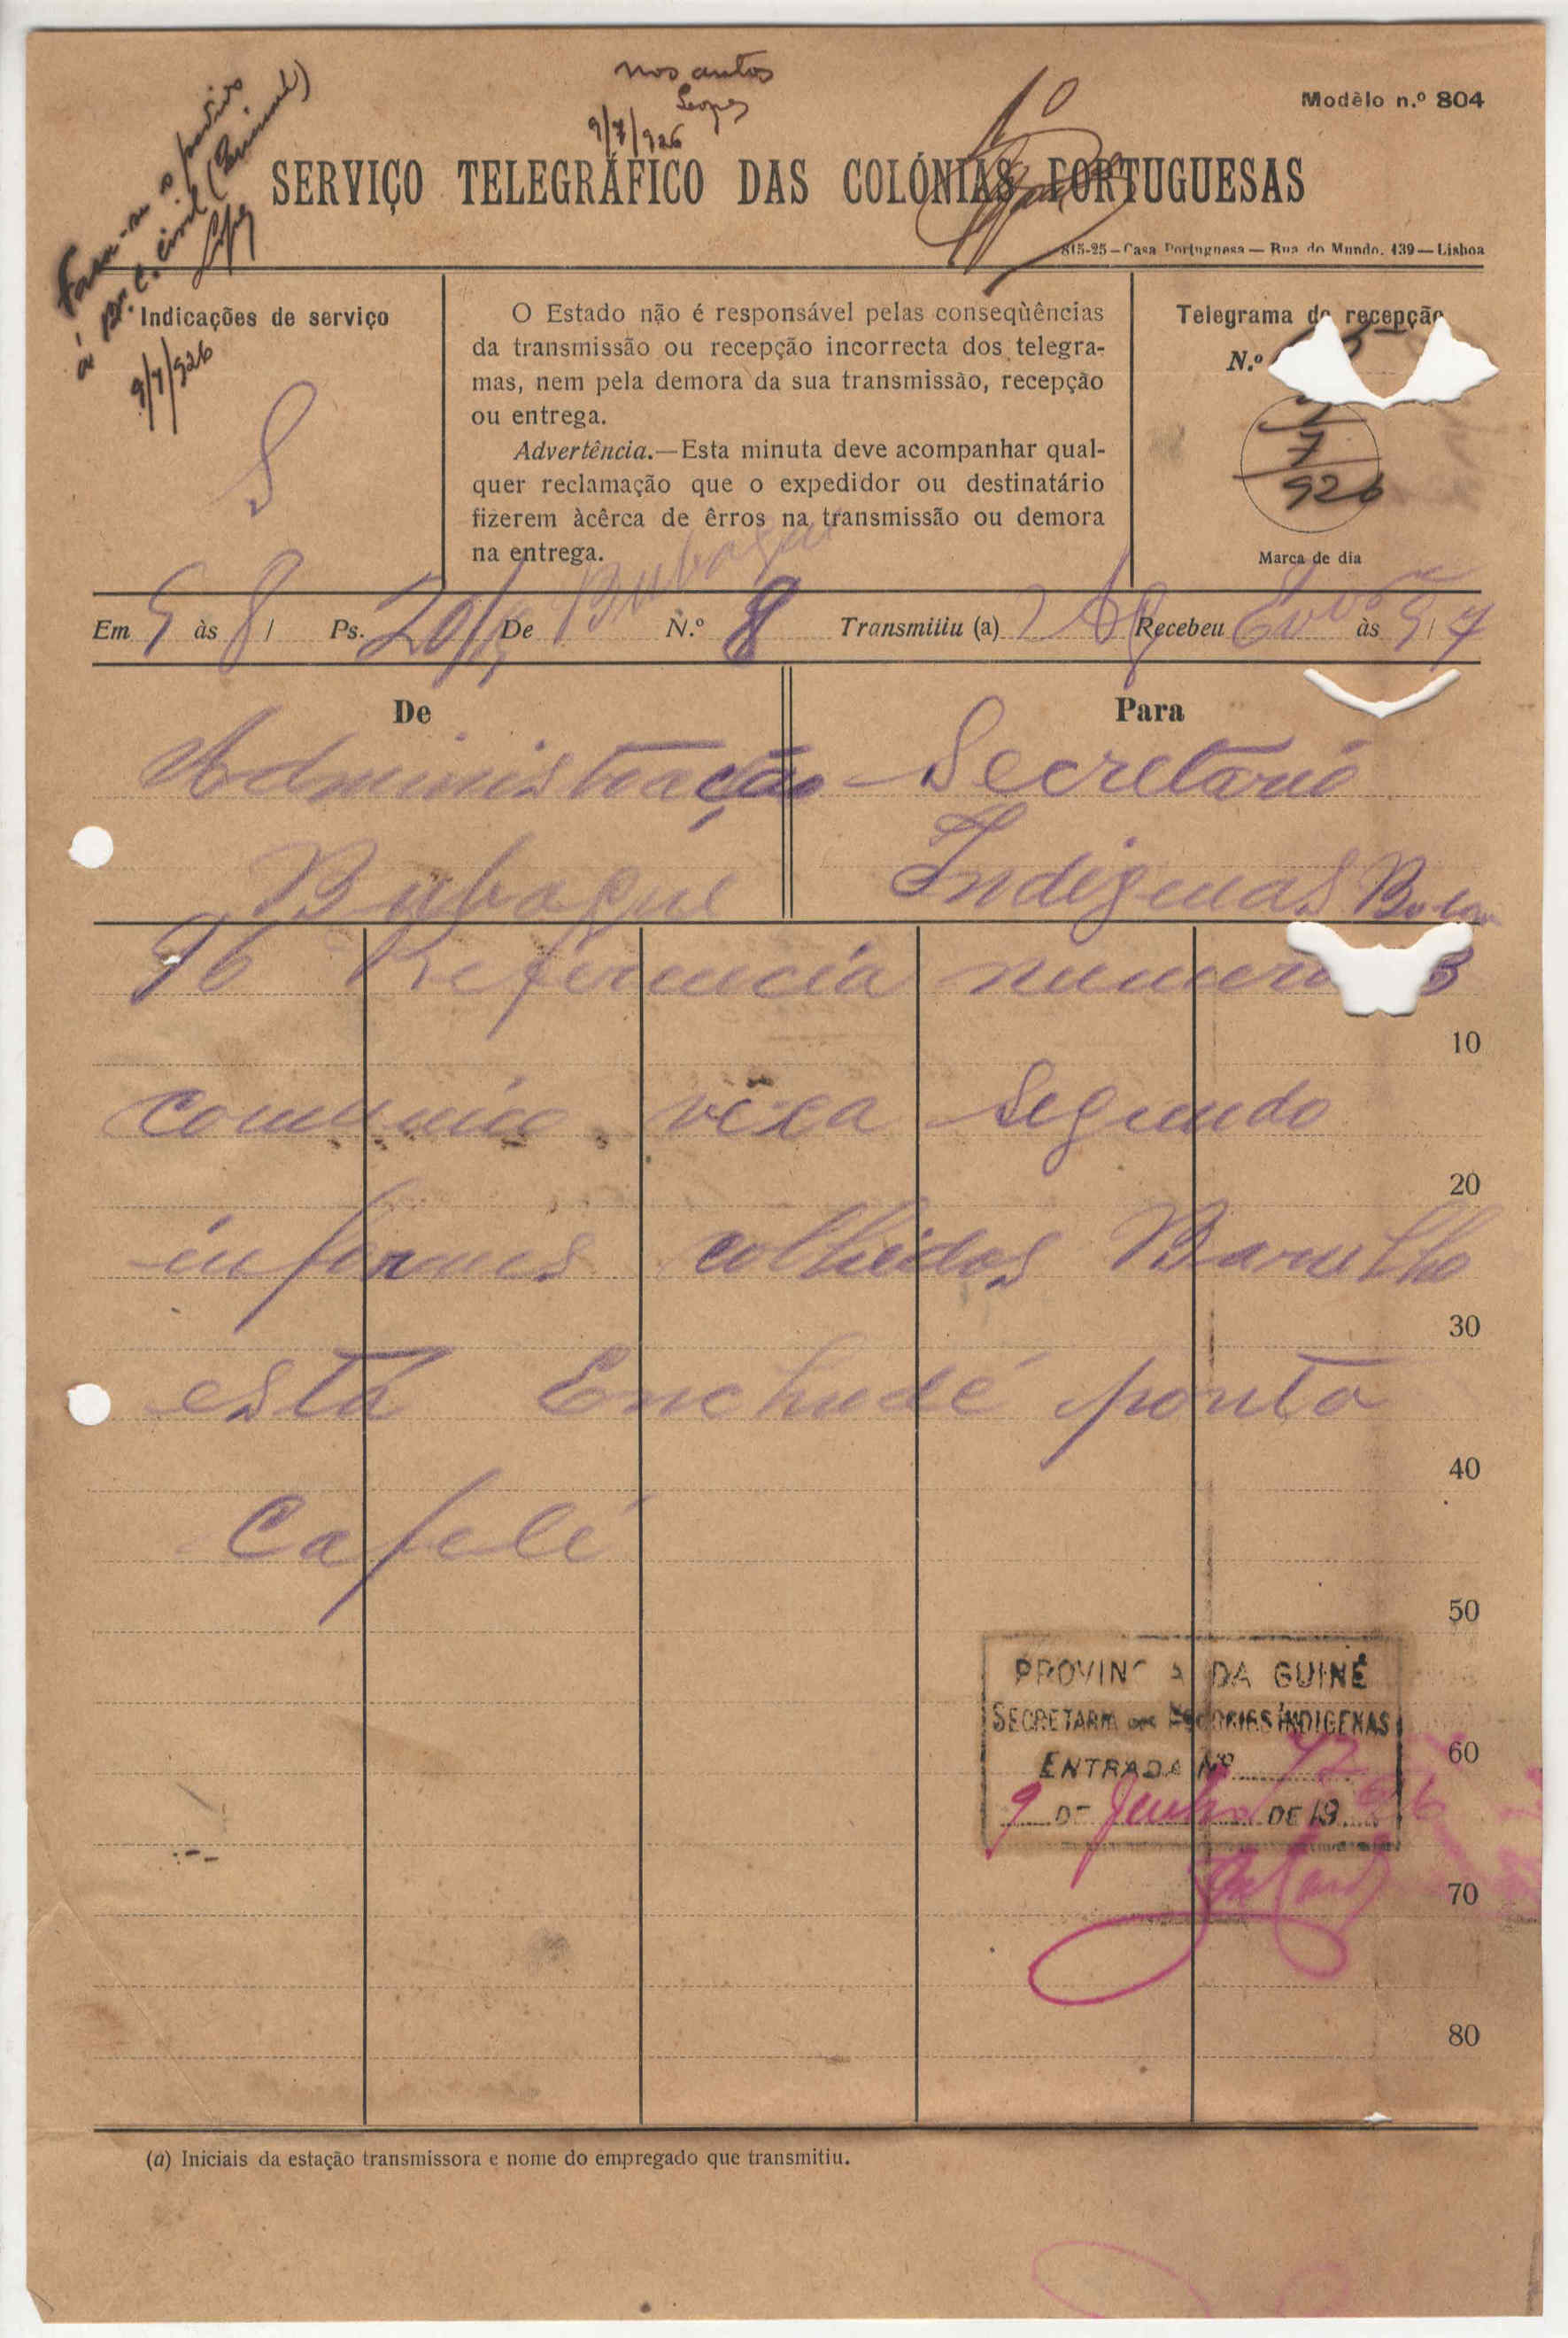 nos autos
Lopes
9/7/926
Modêlo n.º 804
SERVIÇO TELEGRÁFICO DAS COLÓNIAS PORTUGUESAS
815-25 – Casa Portuguesa — Rua do Mundo, 139 — Lisboa
á c. civil (Criminal)
9/7/926
Indicações de serviço
S
O Estado não é responsável pelas conseqùências
da transmissão ou recepção incorrecta dos telegra-
mas, nem pela demora da sua transmissão, recepção
ou entrega.
Advertência.—Esta minuta deve acompanhar qual-
quer reclamação que o expedidor ou destinatário
fizerem àcêrca de êrros na transmissão ou demora
na entrega.
Telegrama de recepção
N.º
7
926
Marca de dia
Em 9 às 8 / Ps. 20/19 De Bubaque N.º 8 Transmitiu (a) Recebeu às 9 / 7
De
Administração
Bubaque
Para
Secretario
Indigenas Bolama
96 Referencia numero 3
10
comunico vexa segundo
20
informes colhidos Barulho
30
está Enchudé ponta
40
Cafelé
50
PROVINCIA DA GUINÉ
SECRETARIA DOS NEGOCIOS INDIGENAS
ENTRADA Nº
9 DE Junho DE 1926
60
70
80
(a) Iniciais da estação transmissora e nome do empregado que transmitiu.